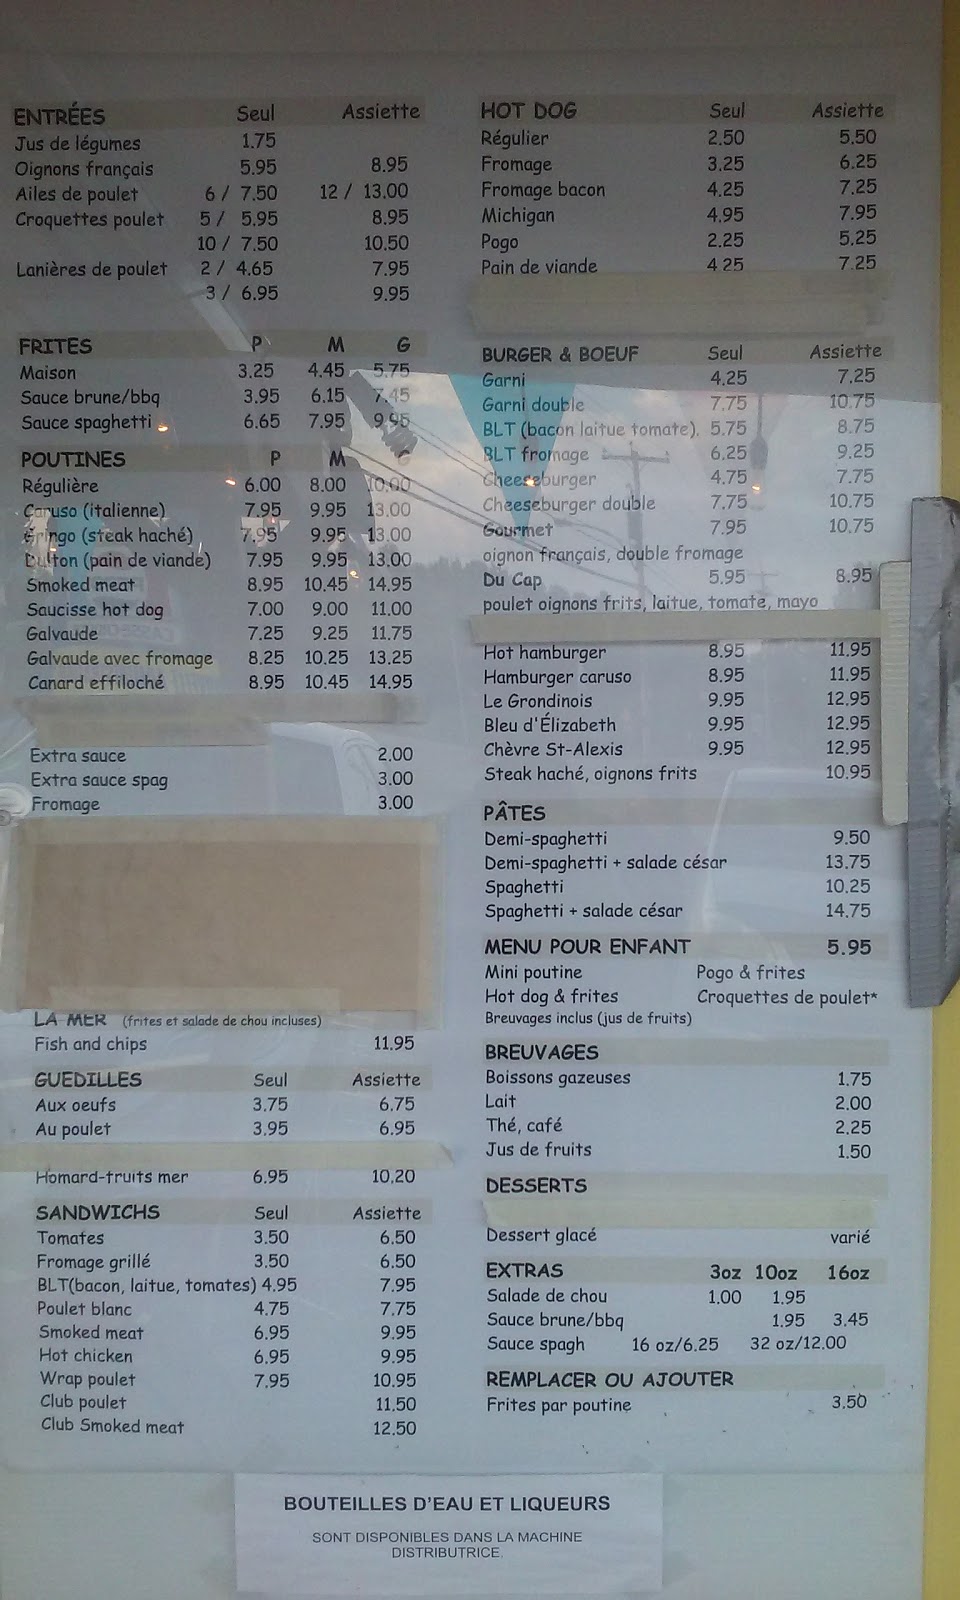 ENTRÉES Seul Assiette
Jus de légumes 1.75
Oignons français 5.95 8.95
Ailes de poulet 6 / 7.50 12 / 13.00
Croquettes poulet 5 / 5.95 8.95
10 / 7.50 10.50
Lanières de poulet 2 / 4.65 7.95
3 / 6.95 9.95
FRITES P M G
Maison 3.25 4.45 5.75
Sauce brune/bbq 3.95 6.15 7.45
Sauce spaghetti 6.65 7.95 9.95
POUTINES P M G
Régulière 6.00 8.00 10.00
Caruso (italienne) 7.95 9.95 13.00
Gringo (steak haché) 7.95 9.95 13.00
Dalton (pain de viande) 7.95 9.95 13.00
Smoked meat 8.95 10.45 14.95
Saucisse hot dog 7.00 9.00 11.00
Galvaude 7.25 9.25 11.75
Galvaude avec fromage 8.25 10.25 13.25
Canard effiloché 8.95 10.45 14.95
Extra sauce 2.00
Extra sauce spag 3.00
Fromage 3.00
LA MER (frites et salade de chou incluses)
Fish and chips 11.95
GUEDILLES Seul Assiette
Aux oeufs 3.75 6.75
Au poulet 3.95 6.95
Homard-fruits mer 6.95 10.20
SANDWICHS Seul Assiette
Tomates 3.50 6.50
Fromage grillé 3.50 6.50
BLT(bacon, laitue, tomates) 4.95 7.95
Poulet blanc 4.75 7.75
Smoked meat 6.95 9.95
Hot chicken 6.95 9.95
Wrap poulet 7.95 10.95
Club poulet 11.50
Club Smoked meat 12.50
HOT DOG Seul Assiette
Régulier 2.50 5.50
Fromage 3.25 6.25
Fromage bacon 4.25 7.25
Michigan 4.95 7.95
Pogo 2.25 5.25
Pain de viande 4.25 7.25
BURGER & BOEUF Seul Assiette
Garni 4.25 7.25
Garni double 7.75 10.75
BLT (bacon laitue tomate). 5.75 8.75
BLT fromage 6.25 9.25
Cheeseburger 4.75 7.75
Cheeseburger double 7.75 10.75
Gourmet 7.95 10.75
oignon français, double fromage
Du Cap 5.95 8.95
poulet oignons frits, laitue, tomate, mayo
Hot hamburger 8.95 11.95
Hamburger caruso 8.95 11.95
Le Grondinois 9.95 12.95
Bleu d'Élizabeth 9.95 12.95
Chèvre St-Alexis 9.95 12.95
Steak haché, oignons frits 10.95
PÂTES
Demi-spaghetti 9.50
Demi-spaghetti + salade césar 13.75
Spaghetti 10.25
Spaghetti + salade césar 14.75
MENU POUR ENFANT 5.95
Mini poutine Pogo & frites
Hot dog & frites Croquettes de poulet*
Breuvages inclus (jus de fruits)
BREUVAGES
Boissons gazeuses 1.75
Lait 2.00
Thé, café 2.25
Jus de fruits 1.50
DESSERTS
Dessert glacé varié
EXTRAS 3oz 10oz 16oz
Salade de chou 1.00 1.95
Sauce brune/bbq 1.95 3.45
Sauce spagh 16 oz/6.25 32 oz/12.00
REMPLACER OU AJOUTER
Frites par poutine 3.50
BOUTEILLES D'EAU ET LIQUEURS
SONT DISPONIBLES DANS LA MACHINE
DISTRIBUTRICE.